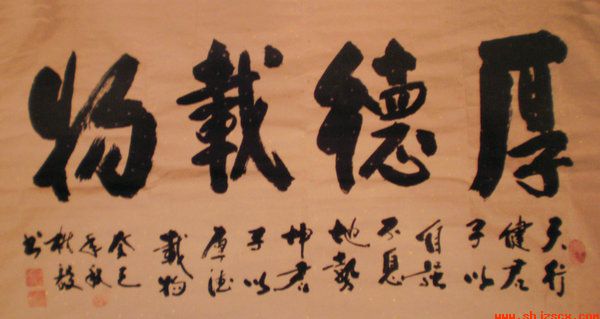 厚德載物
天行
健君
子以
自強
不息
地勢
坤君
子以
厚德
載物
癸巳
书